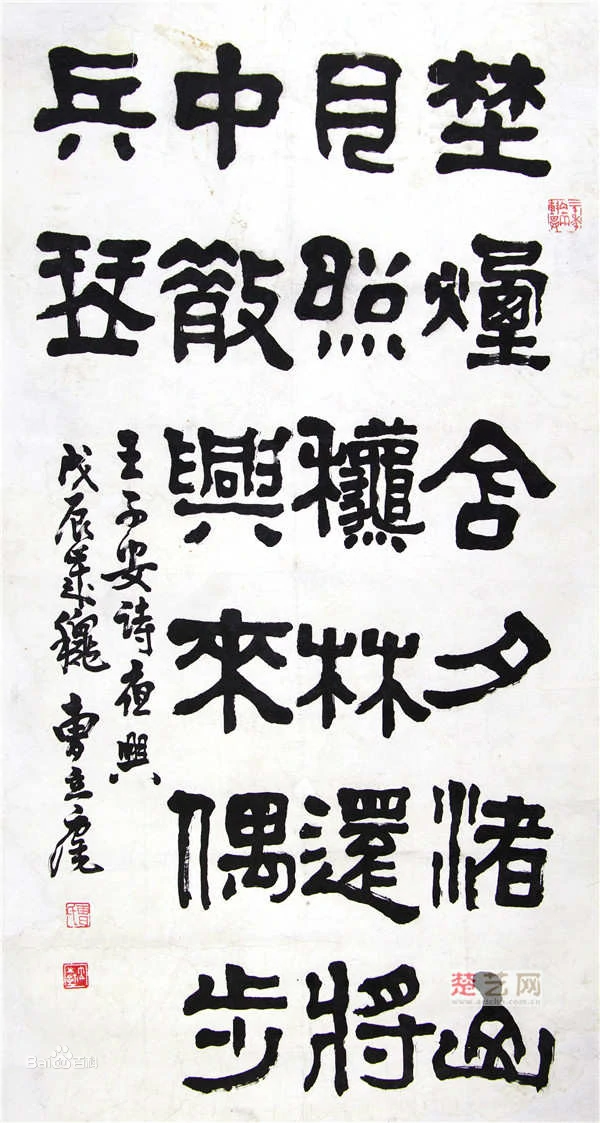 埜煙含夕渚山
月照龝林還將
中散興來偶步
兵琴
王子安詩夜興
戊辰歲穐 曹立庵
楚艺网
Bai百科